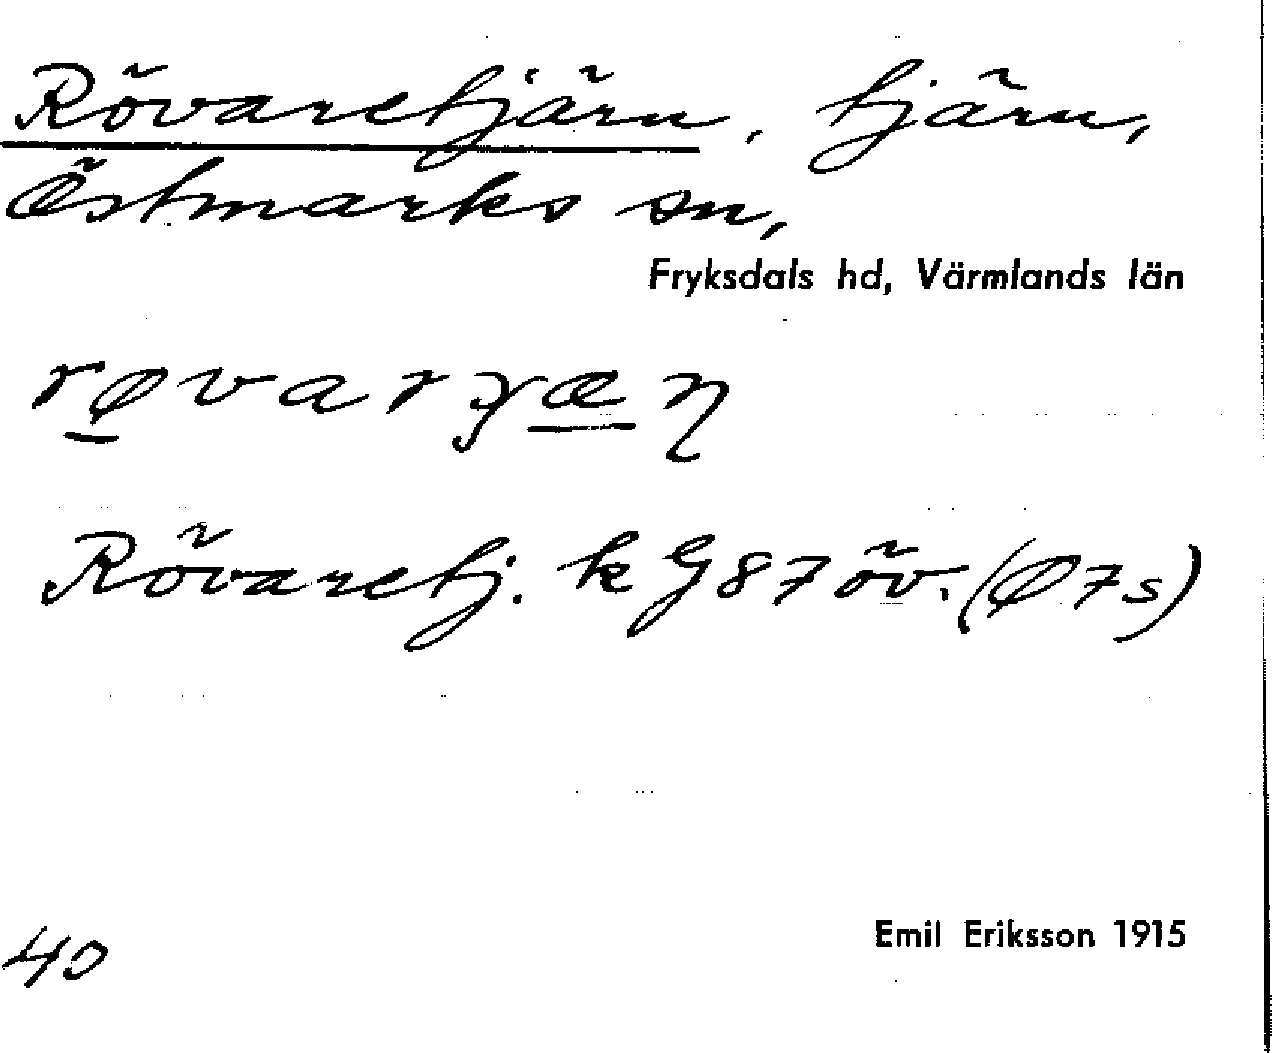 Rövaretjärn, tjärn,
Östmarks sn,
Fryksdals hd, Värmlands län
Rövaretj. k G87 öv. (Ø7s)
40
Emil Eriksson 1915